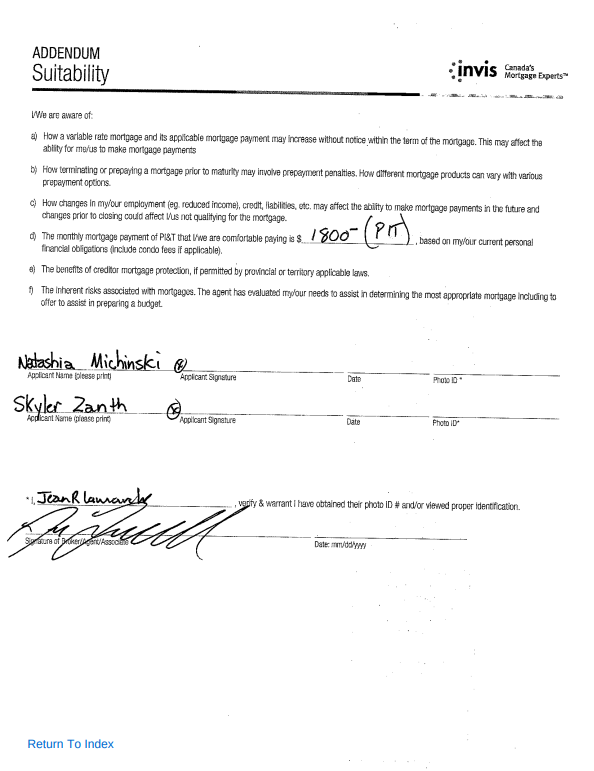 ADDENDUM
Suitability
invis Canada's
Mortgage Experts™
I/We are aware of:
a) How a variable rate mortgage and its applicable mortgage payment may increase without notice within the term of the mortgage. This may affect the
ability for me/us to make mortgage payments
b) How terminating or prepaying a mortgage prior to maturity may involve prepayment penalties. How different mortgage products can vary with various
prepayment options.
c) How changes in my/our employment (eg. reduced income), credit, liabilities, etc. may affect the ability to make mortgage payments in the future and
changes prior to closing could affect I/us not qualifying for the mortgage.
d) The monthly mortgage payment of PI&T that I/we are comfortable paying is $ 1800- (PIT), based on my/our current personal
financial obligations (include condo fees if applicable).
e) The benefits of creditor mortgage protection, if permitted by provincial or territory applicable laws.
f) The inherent risks associated with mortgages. The agent has evaluated my/our needs to assist in determining the most appropriate mortgage including to
offer to assist in preparing a budget.
Natashia Michinski
Applicant Name (please print) Applicant Signature Date Photo ID *
Skyler Zanth
Applicant Name (please print) Applicant Signature Date Photo ID*
* I, Jean R , verify & warrant I have obtained their photo ID # and/or viewed proper identification.
Signature of Broker/Agent/Associate Date: mm/dd/yyyy
Return To Index